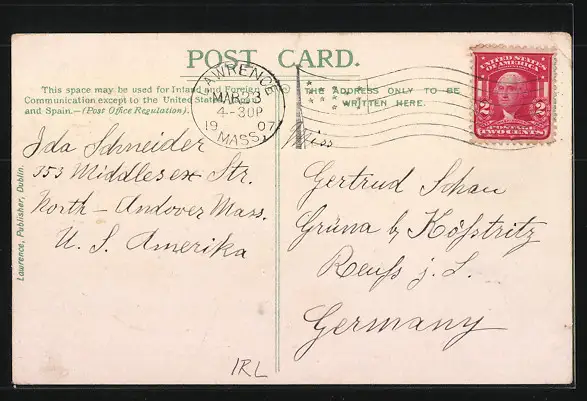 POST CARD.
This space may be used for Inland and Foreign
Communication except to the United States
and Spain.—(Post Office Regulation).
THE ADDRESS ONLY TO BE
WRITTEN HERE.
LAWRENCE
MAR 23
4-30P
1907
MASS.
UNITED STATES
OF AMERICA
2 2
POSTAGE
TWO CENTS
Ida Schneider
353 Middlesex Str.
North – Andover Mass.
U. S. Amerika
Miss
Gertrud Schau
Grüna b/ Köstritz
Reuß j. L.
Germany
Lawrence, Publisher, Dublin.
IRL